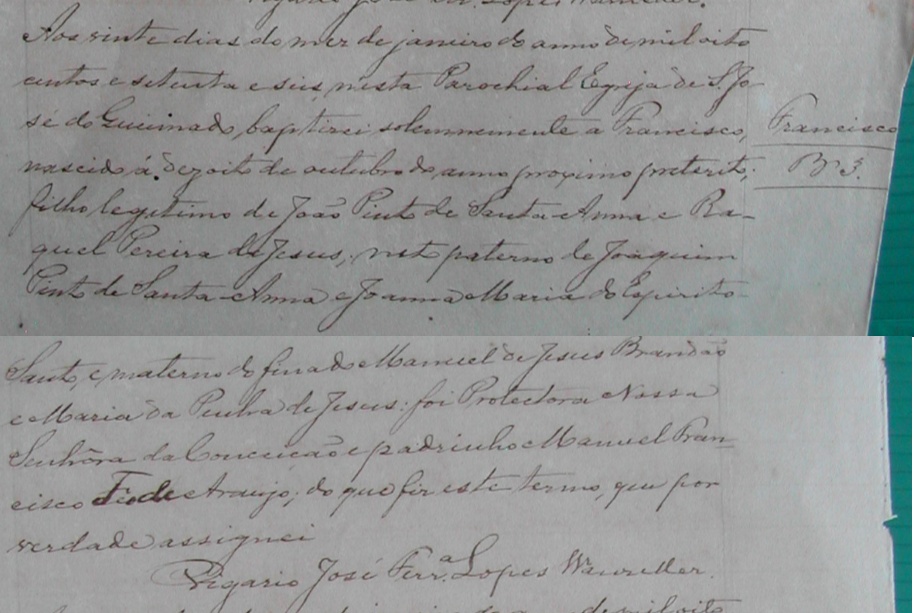 Vigario José Ferr.ª Lopes Wanreller.
Aos vinte dias do mez de janeiro do anno de mil oito
centos e setenta e seis, nesta Parochial Egreja de S. Jo-
sé do Queimado, baptizei solemnemente a Francisco,
Francisco
nascido á dezoito de outubro do anno proximo preterito;
Nº 3.
filho legitimo de João Pinto de Santa-Anna e Ra-
quel Pereira de Jesus; neto paterno de Joaquim
Pinto de Santa-Anna e Joanna Maria do Espirito-
Santo, e materno do finado Manuel de Jesus Brandão
e Maria da Penha de Jesus: foi Protectora Nossa
Senhôra da Conceição e padrinho Manuel Fran-
cisco de Araujo; do que fiz este termo, que por
verdade assignei
Vigario José Ferr.ª Lopes Wanreller.
de mil oito